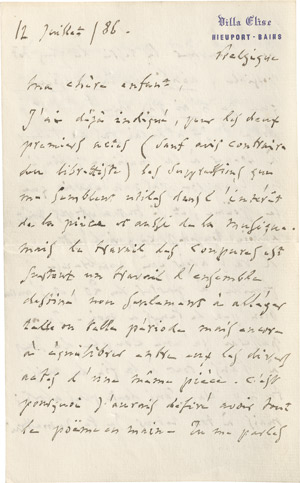 Villa Elise
NIEUPORT-BAINS
12 Juillet /86.
Belgique
Ma chère enfant,
J'ai déjà indiqué, pour les deux
premiers actes (sauf avis contraire
du librettiste) les suppressions que
me semblent utiles dans l'intérêt
de la pièce et aussi de la musique.
mais le travail des coupures est
surtout un travail d'ensemble
destiné non seulement à alléger
telle ou telle période mais encore
à équilibrer entre eux les divers
actes d'une même pièce. C'est
pourquoi j'aurais désiré avoir tout
le poème en main. Tu me parles